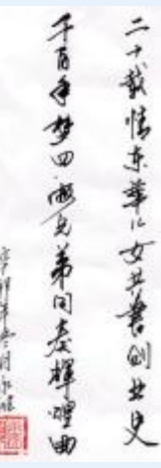 二十载情东华儿女共书创业史
千百年梦四海兄弟同奏辉煌曲